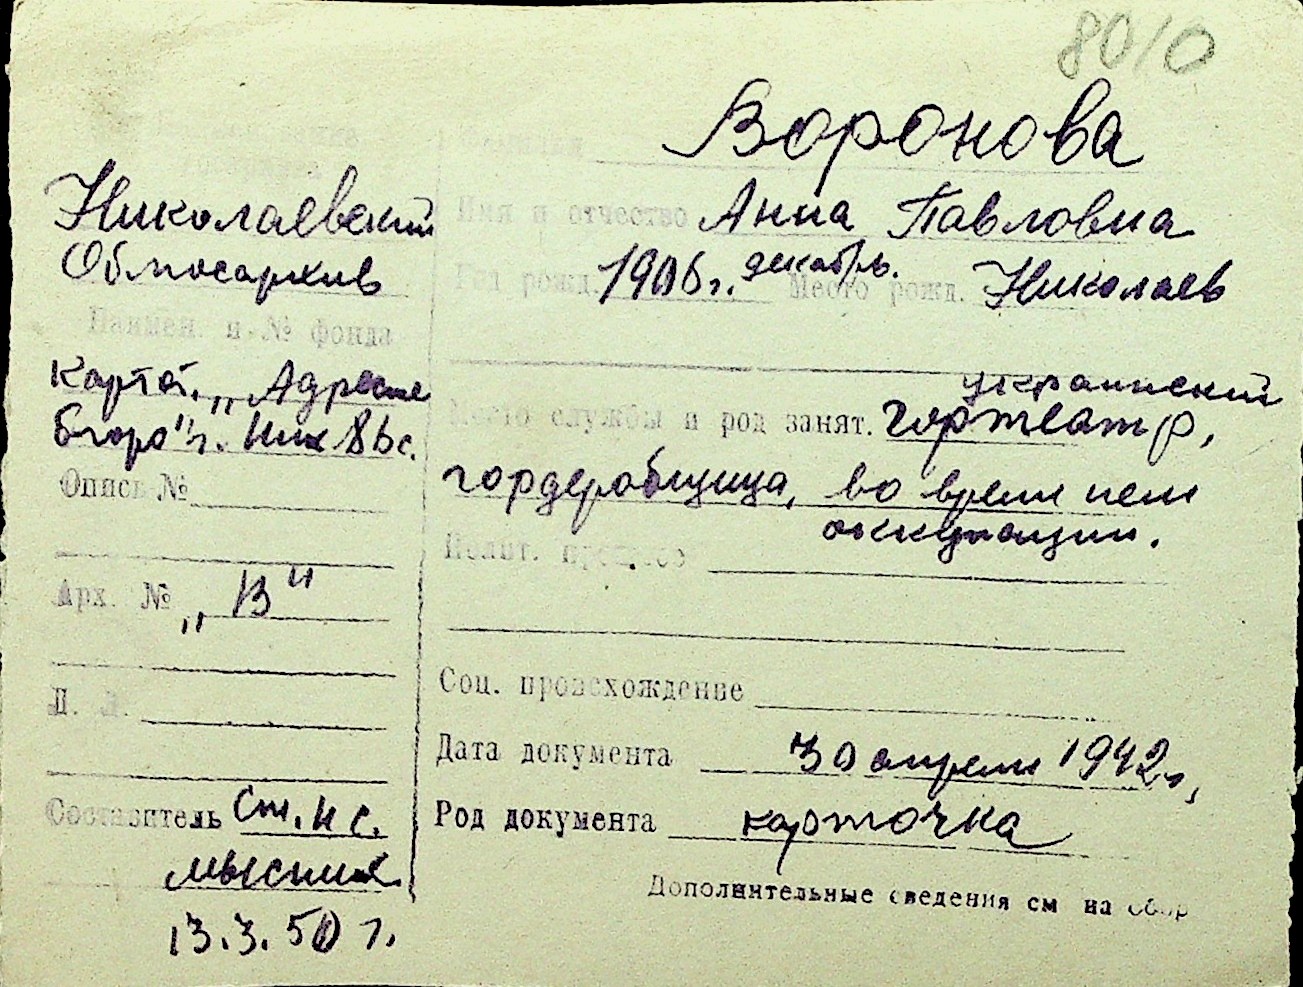 8010
Воронова
Фамилия
Николаевский
Облгосархив
Имя и отчество Анна Павловна
Год рожд. 1906 г. декабрь. Место рожд. Николаев
Наимен. и № фонда
Картот. „Адресне
бюро" г. Ник
украинский
Место службы и род занят. гортеатр,
гордеробщица, во время нем
оккупации.
Опись №
Полит. процесс
Арх. № „В"
Соц. происхождение
Л. Л.
Дата документа 30 апреля 1942 г,
Составитель ст. н с.
Род документа карточка
мысник
13.3.50 г.
Дополнительные сведения см на обор